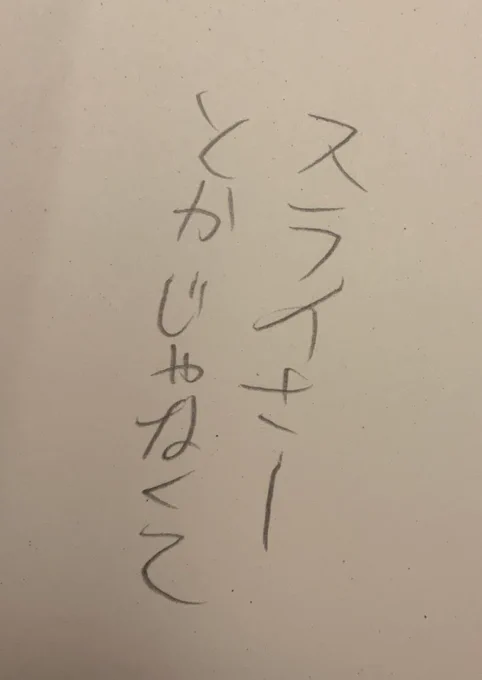 スライナー
とかじゃなくて